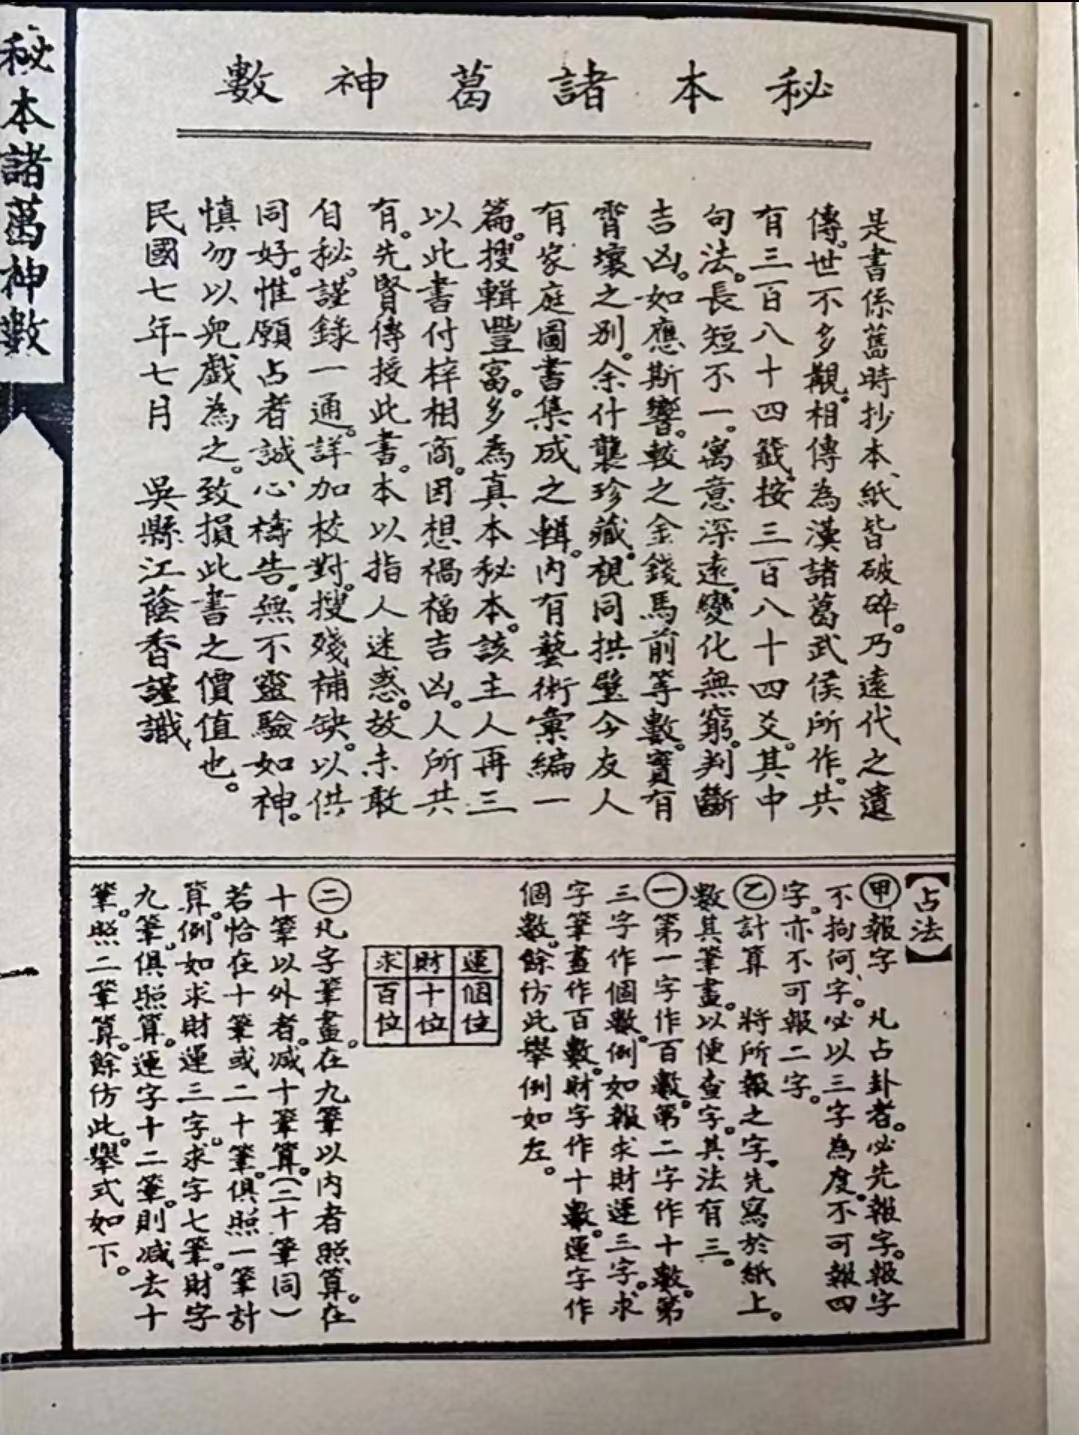 秘本諸葛神數
秘本諸葛神數
是書係舊時抄本、紙皆破碎。乃遠代之遺
傳。世不多觀。相傳為漢諸葛武侯所作。共
有三百八十四籤。按三百八十四爻。其中
句法。長短不一。寓意深遠。變化無窮。判斷
吉凶。如應斯響。較之金錢馬前等數。實有
霄壤之別。余什襲珍藏。視同拱璧今友人
有家庭圖書集成之輯。內有藝術彙編一
篇。搜輯豐富。多為真本秘本。該主人再三
以此書付梓相商。因想禍福吉凶。人所共
有。先賢傳授此書。本以指人迷惑。故未敢
自秘。謹錄一通。詳加校對。搜殘補缺。以供
同好。惟願占者誠心禱告。無不靈驗如神。
慎勿以兒戲為之。致損此書之價值也。
民國七年七月　吳縣江蔭香謹識
【占法】
㊙甲報字　凡占卦者。必先報字。報字
不拘何字。必以三字為度。不可報四
字。亦不可報二字。
乙計算　將所報之字。先寫於紙上。
數其筆畫。以便查字。其法有三。
㊀第一字作百數。第二字作十數。第
三字作個數。例如報求財運三字。求
字筆畫作百數。財字作十數。運字作
個數。餘仿此。舉例如左。
運 財 求
個位 十位 百位
㊁凡字筆畫。在九筆以內者照算。在
十筆以外者。減十筆算。（二十筆同）
若恰在十筆或二十筆。俱照一筆計
算。例如求財運三字。求字七筆。財字
九筆。俱照算。運字十二筆。則減去十
筆。照二筆算。餘仿此。舉式如下。
一